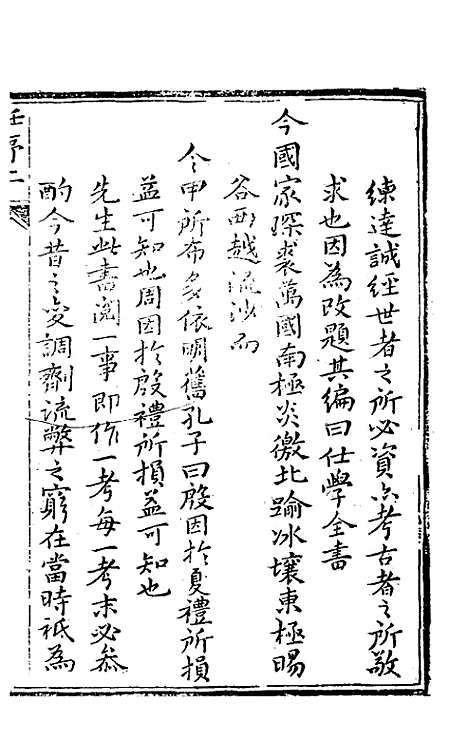 練達誠經世者之所必資亦考古者之所敬
求也因為改題其編曰仕學全書
今國家琛裘萬國南極炎徼北踰冰壤東極暘
谷西越流沙而
令甲所布多依明舊孔子曰殷因於夏禮所損
益可知也周因於殷禮所損益可知也
先生此書閱一事即作一考每一考末必參
酌今昔之變調劑流弊之窮在當時祇為
仕序二